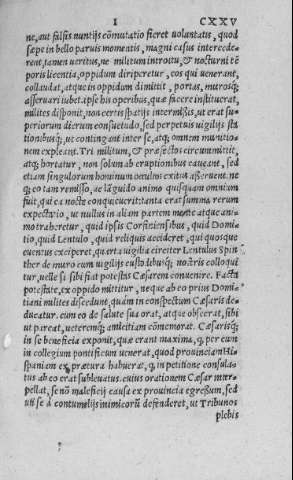 I CXXV
ne, aut falsis nuntijs cõmutatio fieret uoluntatis, quod
sæpe in bello paruis momentis, magni casus intercede-
rent, tamen ueritus, ne militum introitu, & nocturni tẽ
poris licentia, oppidum diriperetur, eos qui uenerant,
collaudat, atque in oppidum dimittit, portas, murosq;
asseruari iubet. ipse his operibus, quæ facere instituerat,
milites disponit, non certis spatijs intermißis, ut erat su-
periorum dierum consuetudo, sed perpetuis uigilijs sta
tionibusq; ut contingant inter se, atq; omnem munitio
nem expleant. Tri. militum, & præfectos circummittit,
atq; hortatur, non solum ab eruptionibus caueant, sed
etiam singulorum hominum occultos exitus asseruent. ne
q; eo tam remisso, ac lãguido animo quisquam omnium
fuit, qui ea nocte conquieuerit. tanta erat summa rerum
expectatio, ut nullus in aliam partem mente atque ani-
mo traheretur, quid ipsis Corfiniensibus, quid Domi-
tio, quid Lentulo, quid reliquis accideret, qui quosque
euentus exciperet. quarta uigilia circiter Lentulus Spin
ther de muro cum uigilijs custodibusq; nostris colloqui
tur, uelle si sibi fiat potestas Cæsarem conuenire. Facta
potestate, ex oppido mittitur, neque ab eo prius Domi-
tiani milites discedunt, quàm in conspectum Cæsaris de-
ducatur. cum eo de salute sua orat, atque obsecrat, sibi
ut parcat, ueteremq; amicitiam cõmemorat. Cæsarisq;
in se beneficia exponit, quæ erant maxima, q, per eum
in collegium pontificum uenerat, quod prouinciam Hi-
spaniam ex prætura habuerat, q, in petitione consula-
tus ab eo erat subleuatus. cuius orationem Cæsar inter-
pellat, se nõ maleficij causa ex prouincia egreßum, sed
uti se à contumelijs inimicorũ defenderet, ut Tribunos
plebis